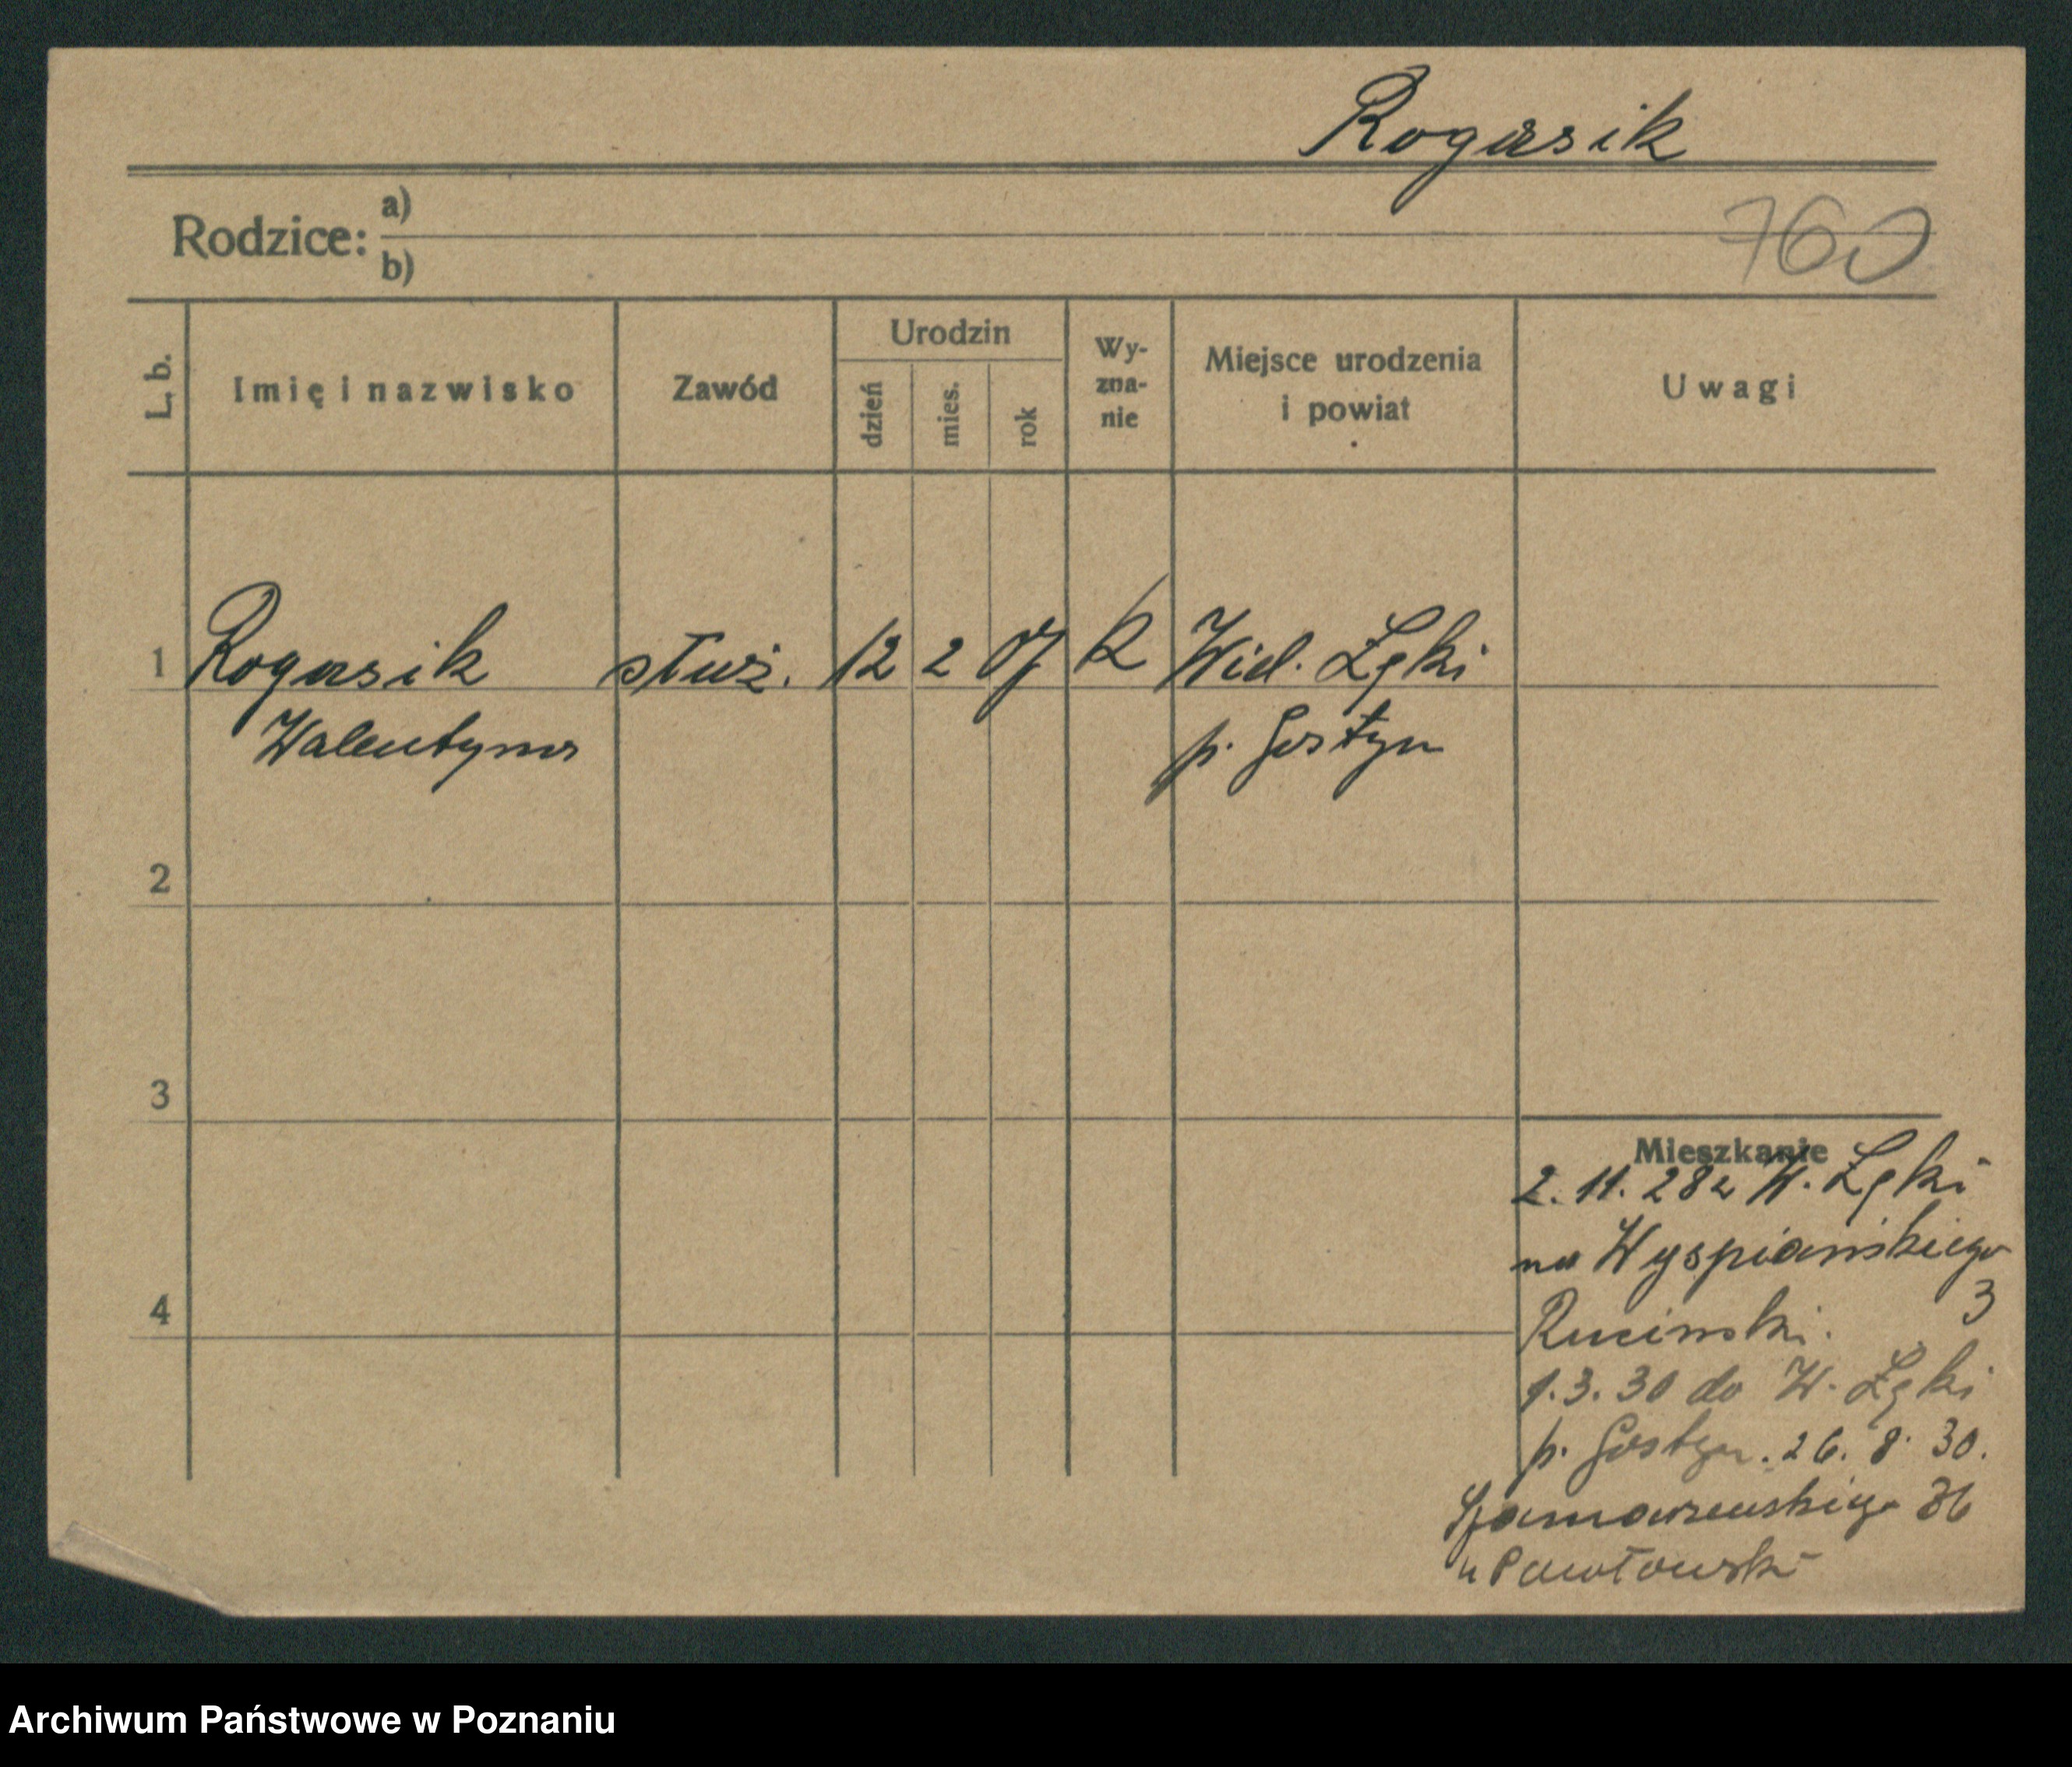 Rogasik
Rodzice: a)
b)
760
L. b.
Imię i nazwisko
Zawód
Urodzin
dzień
mies.
rok
Wy-
zna-
nie
Miejsce urodzenia
i powiat
Uwagi
1 Rogasik służ. 12 2 07 k Wiel. Łęki
Walentyna p. Gostyn
2
3
Mieszkanie
2. 11. 28 z W. Łęki
na Wyspiańskiego
3
4
Ruciński.
1. 3. 30 do W. Łęki
p. Gostyn. 26. 8. 30.
Szamarzewskiego 36
u Pawłowski
Archiwum Państwowe w Poznaniu